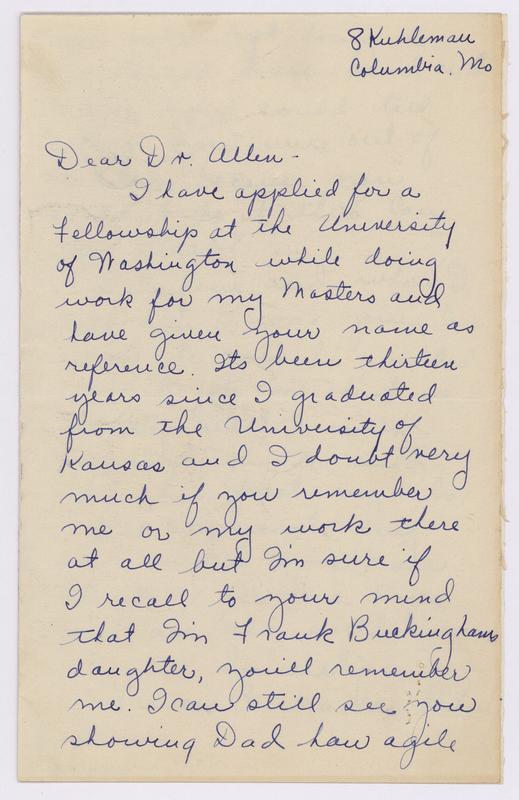 8 Kuhleman
Columbia, Mo
Dear Dr. Allen -
I have applied for a
Fellowship at the University
of Washington while doing
work for my Masters and
have given your name as
reference. Its been thirteen
years since I graduated
from the University of
Kansas and I doubt very
much if you remember
me or my work there
at all but I'm sure if
I recall to your mind
that I'm Frank Buckinghams
daughter, you'll remember
me. I can still see you
showing Dad how agile